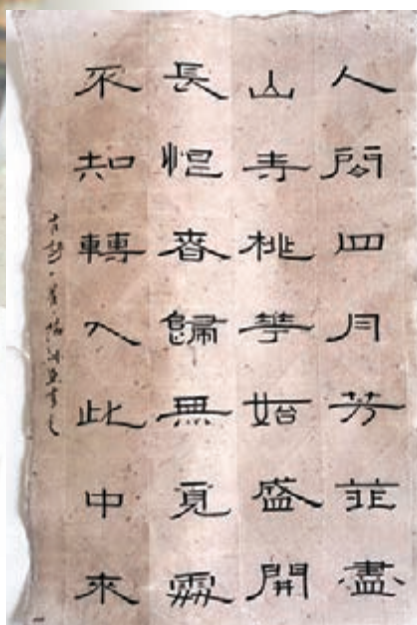 人間四月芳菲盡
山寺桃華始盛開
長恨春歸無覓處
不知轉入此中來
古詩一首